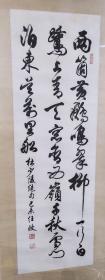 兩箇黃鸝鳴翠柳一行白
鷺上青天窗含西嶺千秋雪門
泊東吳萬里船 杜少陵絕句己未任政